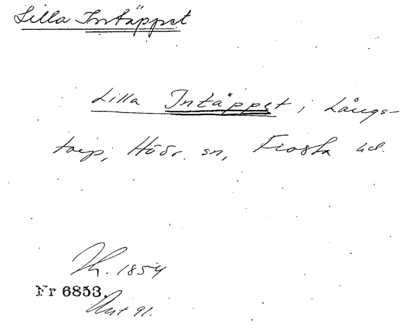 Lilla Intäppet
Lilla Intäppet i Långs-
torp, Höör sn, Frosta hd.
Th. 1854
Nr 6853.
Akt 91.